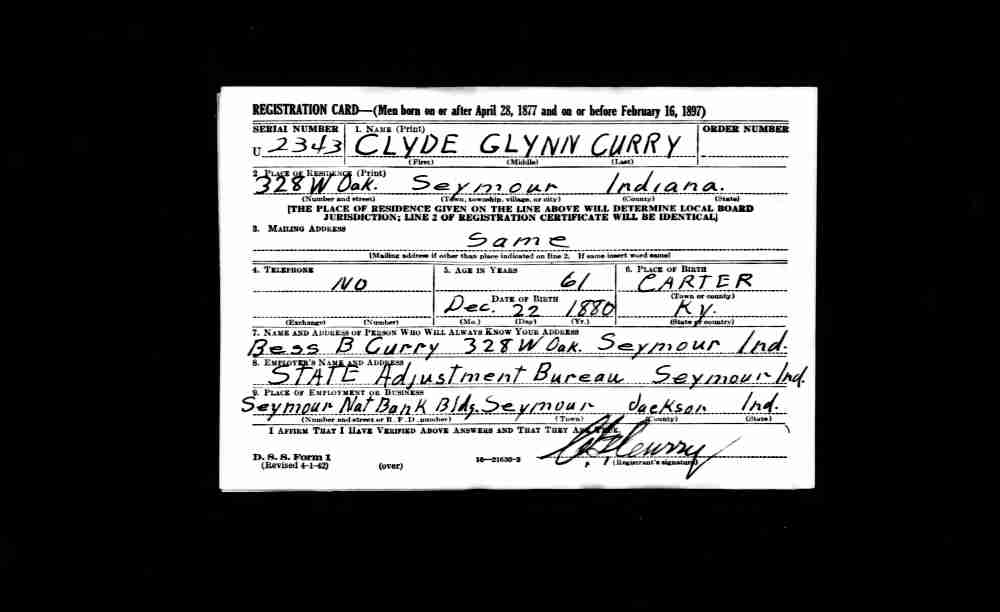 REGISTRATION CARD—(Men born on or after April 28, 1877 and on or before February 16, 1897)
SERIAL NUMBER 1. NAME (Print) ORDER NUMBER
U 2343 CLYDE GLYNN CURRY
(First) (Middle) (Last)
2. PLACE OF RESIDENCE (Print)
328 W Oak. Seymour Indiana.
(Number and street) (Town, township, village, or city) (County) (State)
[THE PLACE OF RESIDENCE GIVEN ON THE LINE ABOVE WILL DETERMINE LOCAL BOARD
JURISDICTION; LINE 2 OF REGISTRATION CERTIFICATE WILL BE IDENTICAL]
3. MAILING ADDRESS
Same
[Mailing address if other than place indicated on line 2. If same insert word same]
4. TELEPHONE 5. AGE IN YEARS 6. PLACE OF BIRTH
NO 61 CARTER
DATE OF BIRTH (Town or county)
Dec. 22 1880 Ky.
(Exchange) (Number) (Mo.) (Day) (Yr.) (State or country)
7. NAME AND ADDRESS OF PERSON WHO WILL ALWAYS KNOW YOUR ADDRESS
Bess B Curry 328 W Oak. Seymour Ind.
8. EMPLOYER'S NAME AND ADDRESS
STATE Adjustment Bureau Seymour Ind.
9. PLACE OF EMPLOYMENT OR BUSINESS
Seymour Nat Bank Bldg. Seymour Jackson Ind.
(Number and street or R. F. D. number) (Town) (County) (State)
I AFFIRM THAT I HAVE VERIFIED ABOVE ANSWERS AND THAT THEY ARE TRUE.
D. S. S. Form 1
(Revised 4-1-42) (over) 16—21630-2 (Registrant's signature)